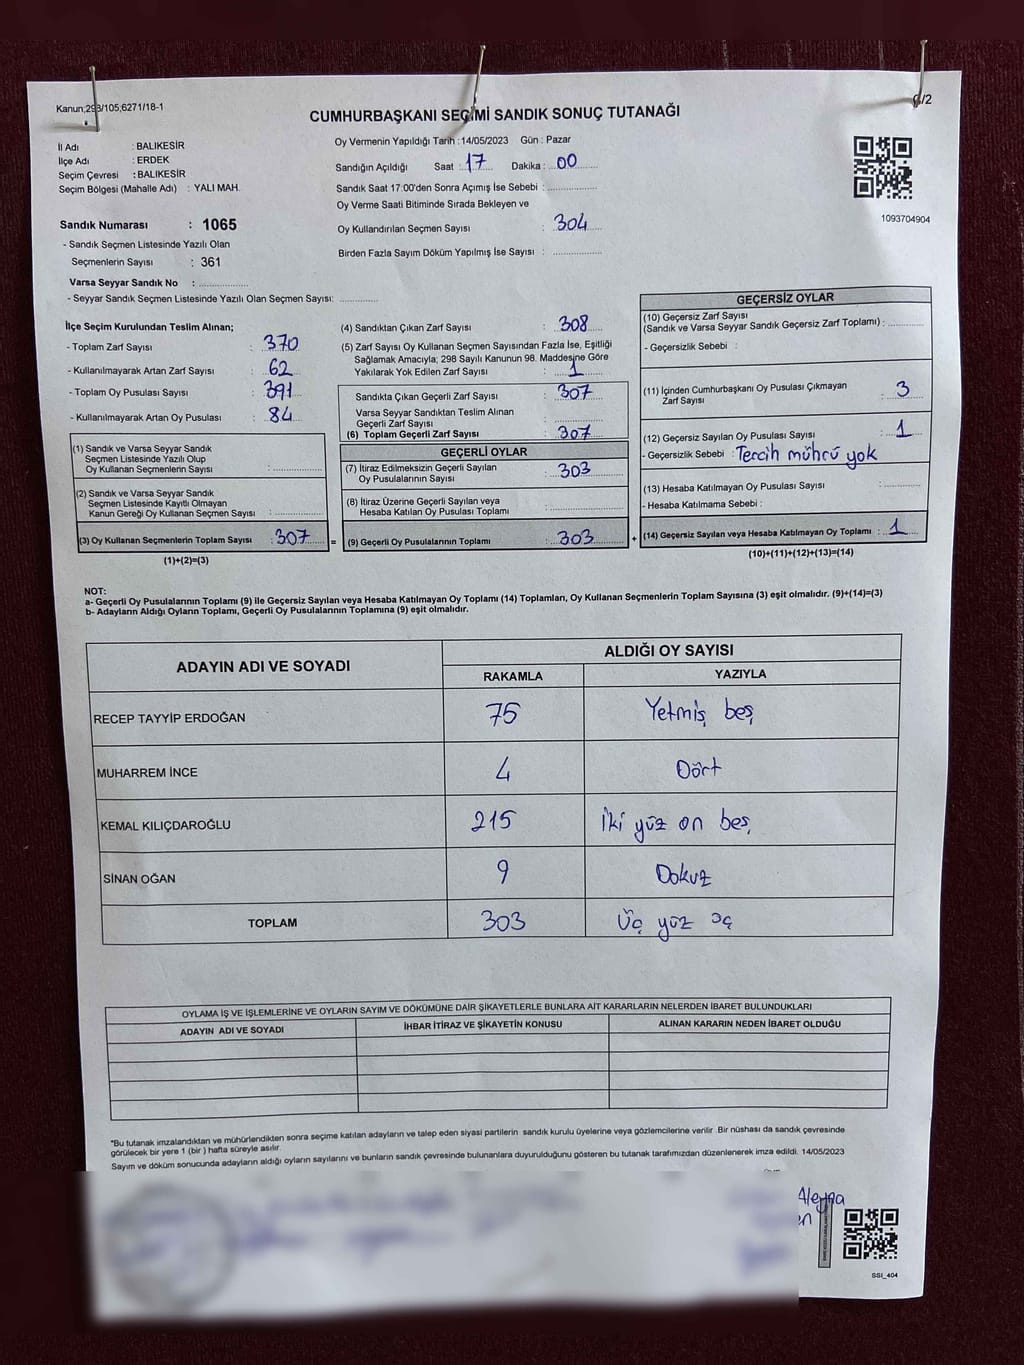 Kanun;298/105,6271/18-1
/2
CUMHURBAŞKANI SEÇİMİ SANDIK SONUÇ TUTANAĞI
İl Adı : BALIKESİR
İlçe Adı : ERDEK
Seçim Çevresi : BALIKESİR
Seçim Bölgesi (Mahalle Adı) : YALI MAH.
Oy Vermenin Yapıldığı Tarih :14/05/2023 Gün : Pazar
Sandığın Açıldığı Saat : 17 Dakika : 00
Sandık Saat 17:00'den Sonra Açımış İse Sebebi :
Oy Verme Saati Bitiminde Sırada Bekleyen ve
Oy Kullandırılan Seçmen Sayısı : 304
Birden Fazla Sayım Döküm Yapılmış İse Sayısı :
1093704904
Sandık Numarası : 1065
- Sandık Seçmen Listesinde Yazılı Olan
Seçmenlerin Sayısı : 361
Varsa Seyyar Sandık No :
- Seyyar Sandık Seçmen Listesinde Yazılı Olan Seçmen Sayısı:
İlçe Seçim Kurulundan Teslim Alınan;
- Toplam Zarf Sayısı : 370
- Kullanılmayarak Artan Zarf Sayısı : 62
- Toplam Oy Pusulası Sayısı : 391
- Kullanılmayarak Artan Oy Pusulası : 84
(1) Sandık ve Varsa Seyyar Sandık
Seçmen Listesinde Yazılı Olup
Oy Kullanan Seçmenlerin Sayısı :
(2) Sandık ve Varsa Seyyar Sandık
Seçmen Listesinde Kayıtlı Olmayan
Kanun Gereği Oy Kullanan Seçmen Sayısı :
(3) Oy Kullanan Seçmenlerin Toplam Sayısı : 307 =
(1)+(2)=(3)
(4) Sandıktan Çıkan Zarf Sayısı : 308
(5) Zarf Sayısı Oy Kullanan Seçmen Sayısından Fazla İse, Eşitliği
Sağlamak Amacıyla; 298 Sayılı Kanunun 98. Maddesine Göre
Yakılarak Yok Edilen Zarf Sayısı : 1
Sandıkta Çıkan Geçerli Zarf Sayısı : 307
Varsa Seyyar Sandıktan Teslim Alınan
Geçerli Zarf Sayısı :
(6) Toplam Geçerli Zarf Sayısı : 307
GEÇERLİ OYLAR
(7) İtiraz Edilmeksizin Geçerli Sayılan
Oy Pusulalarının Sayısı : 303
(8) İtiraz Üzerine Geçerli Sayılan veya
Hesaba Katılan Oy Pusulası Toplamı :
(9) Geçerli Oy Pusulalarının Toplamı : 303 +
GEÇERSİZ OYLAR
(10) Geçersiz Zarf Sayısı
(Sandık ve Varsa Seyyar Sandık Geçersiz Zarf Toplamı) :
- Geçersizlik Sebebi :
(11) İçinden Cumhurbaşkanı Oy Pusulası Çıkmayan
Zarf Sayısı : 3
(12) Geçersiz Sayılan Oy Pusulası Sayısı : 1
- Geçersizlik Sebebi : Tercih mührü yok
(13) Hesaba Katılmayan Oy Pusulası Sayısı :
- Hesaba Katılmama Sebebi :
(14) Geçersiz Sayılan veya Hesaba Katılmayan Oy Toplamı : 1
(10)+(11)+(12)+(13)=(14)
NOT:
a- Geçerli Oy Pusulalarının Toplamı (9) ile Geçersiz Sayılan veya Hesaba Katılmayan Oy Toplamı (14) Toplamları, Oy Kullanan Seçmenlerin Toplam Sayısına (3) eşit olmalıdır. (9)+(14)=(3)
b- Adayların Aldığı Oyların Toplamı, Geçerli Oy Pusulalarının Toplamına (9) eşit olmalıdır.
ADAYIN ADI VE SOYADI ALDIĞI OY SAYISI
RAKAMLA YAZIYLA
RECEP TAYYİP ERDOĞAN 75 Yetmiş beş
MUHARREM İNCE 4 Dört
KEMAL KILIÇDAROĞLU 215 İki yüz on beş
SİNAN OĞAN 9 Dokuz
TOPLAM 303 Üç yüz üç
OYLAMA İŞ VE İŞLEMLERİNE VE OYLARIN SAYIM VE DÖKÜMÜNE DAİR ŞİKAYETLERLE BUNLARA AİT KARARLARIN NELERDEN İBARET BULUNDUKLARI
ADAYIN ADI VE SOYADI İHBAR İTİRAZ VE ŞİKAYETİN KONUSU ALINAN KARARIN NEDEN İBARET OLDUĞU
*Bu tutanak imzalandıktan ve mühürlendikten sonra seçime katılan adayların ve talep eden siyasi partilerin sandık kurulu üyelerine veya gözlemcilerine verilir .Bir nüshası da sandık çevresinde
görülecek bir yere 1 (bir ) hafta süreyle asılır.
Sayım ve döküm sonucunda adayların aldığı oyların sayılarını ve bunların sandık çevresinde bulunanlara duyurulduğunu gösteren bu tutanak tarafımızdan düzenlenerek imza edildi. 14/05/2023
Aleyna
en
SSİ_404